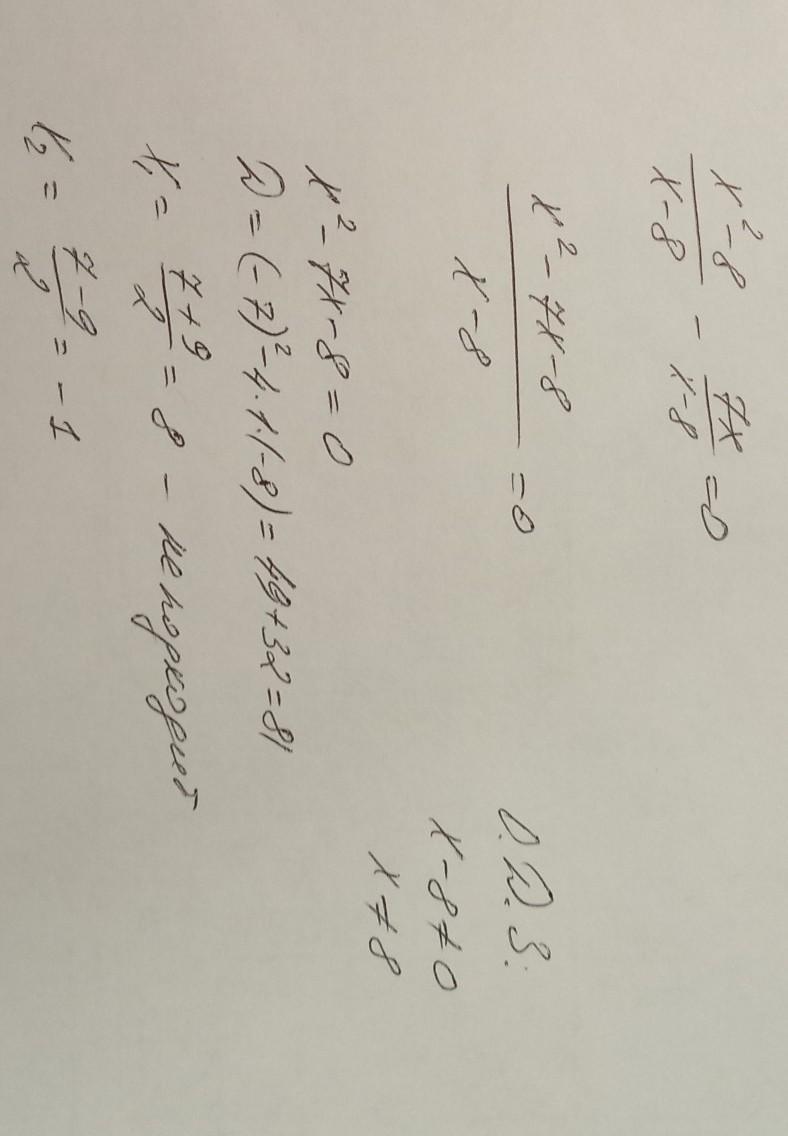 x² - 8 / x - 8 - 7x / x - 8 = 0
x² - 7x - 8 / x - 8 = 0
О.Д.З.:
x - 8 ≠ 0
x ≠ 8
x² - 7x - 8 = 0
D = (-7)² - 4·1·(-8) = 49 + 32 = 81
x₁ = 7 + 9 / 2 = 8 - не подходит
x₂ = 7 - 9 / 2 = -1